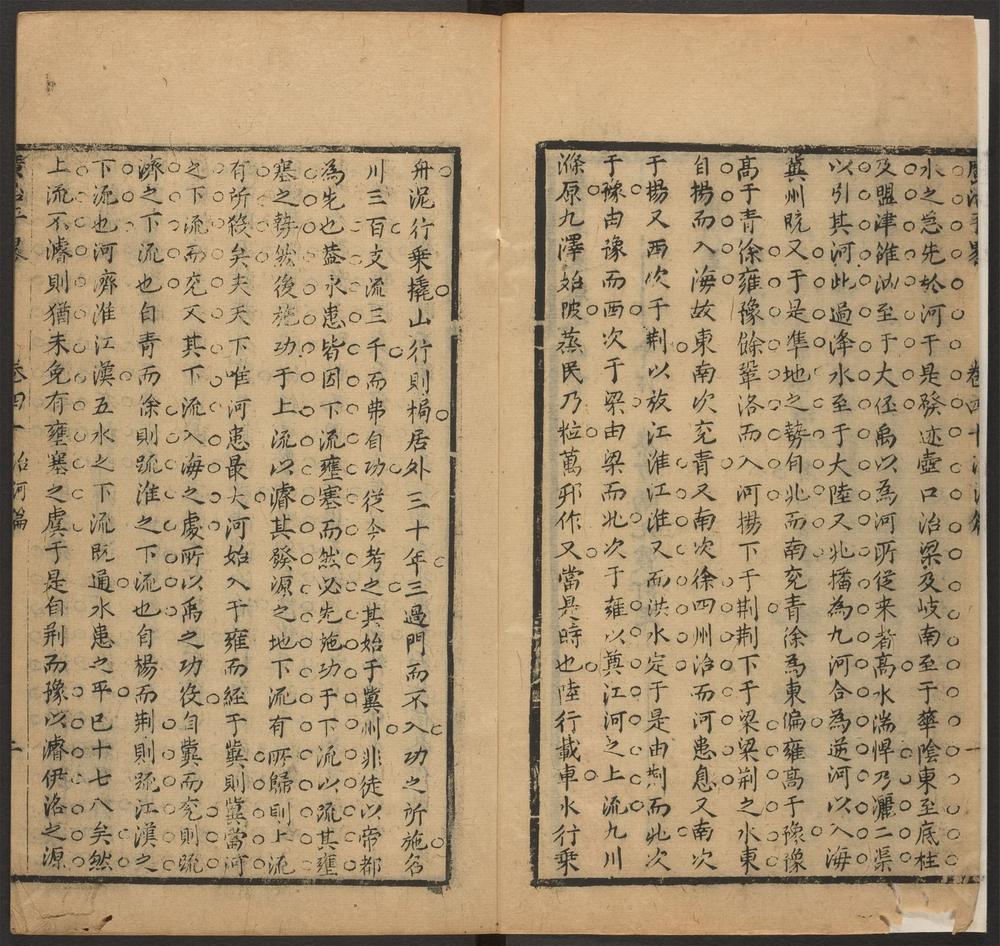 水之急先於河于是發迹壺口治梁及岐南至于華陰東至底柱
及盟津雒汭至于大伾禹以為河所從來者高水湍悍乃灑二渠
以引其河北過洚水至于大陸又北播為九河合為逆河以入海
冀州既乂于是準地之勢自北而南兗青徐為東偏雍高于豫豫
高于青徐雍豫餘鞏洛而入河揚下于荆荆下于梁梁荆之水東
自揚而入海故東南次兗青又南次徐四州治而河患息又南次
于揚又西次于荆以放江淮江淮乂而洪水定于是由荆而北次
于豫由豫而西次于梁由梁而北次于雍以奠江河之上流九川
滌原九澤始陂蒸民乃粒萬邦作乂當是時也陸行載車水行乗
舟泥行乗橇山行則梮居外三十年三過門而不入功之所施名
川三百支流三千而弗自功從今考之其始于冀州非徒以帝都
為先也蓋水患皆因下流壅塞而然必先施功于下流以疏其壅
塞之勢然後施功于上流以濬其發源之地下流有所歸則上流
有所殺矣夫天下唯河患最大河始入于雍而經于冀則冀當河
之下流而兗又其下流入海之處所以禹之功役自冀而兗則疏
濟之下流也自青而徐則疏淮之下流也自楊而荆則疏江漢之
下流也河濟淮江漢五水之下流既通水患之平已十七八矣然
上流不濬則猶未免有壅塞之虞于是自荆而豫以濬伊洛之源
卷四十 治河篇 二